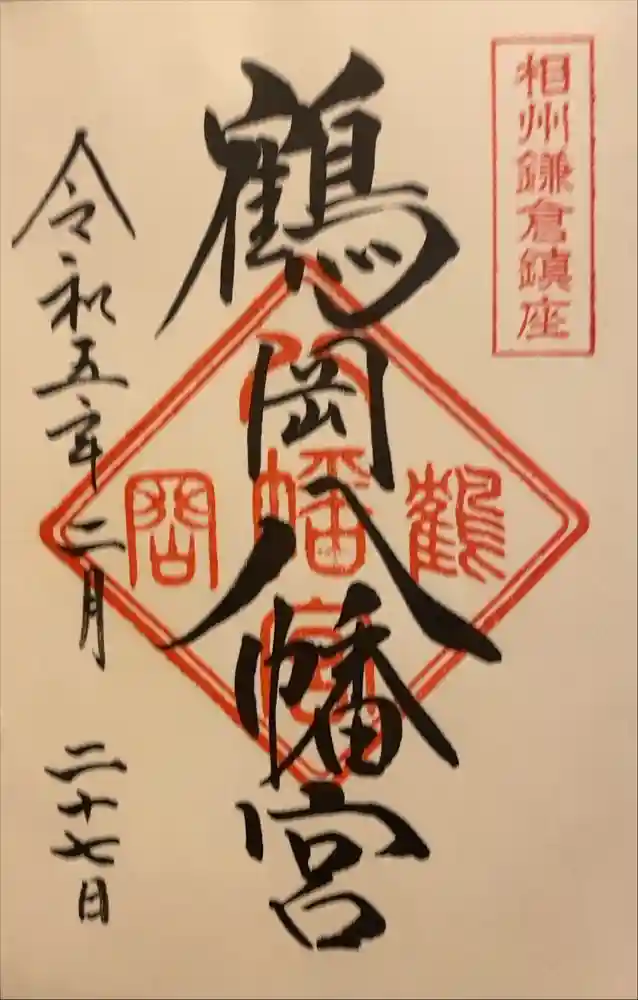 相州鎌倉鎮座
鶴岡八幡宮
鶴岡八幡宮
令和五年二月二十七日